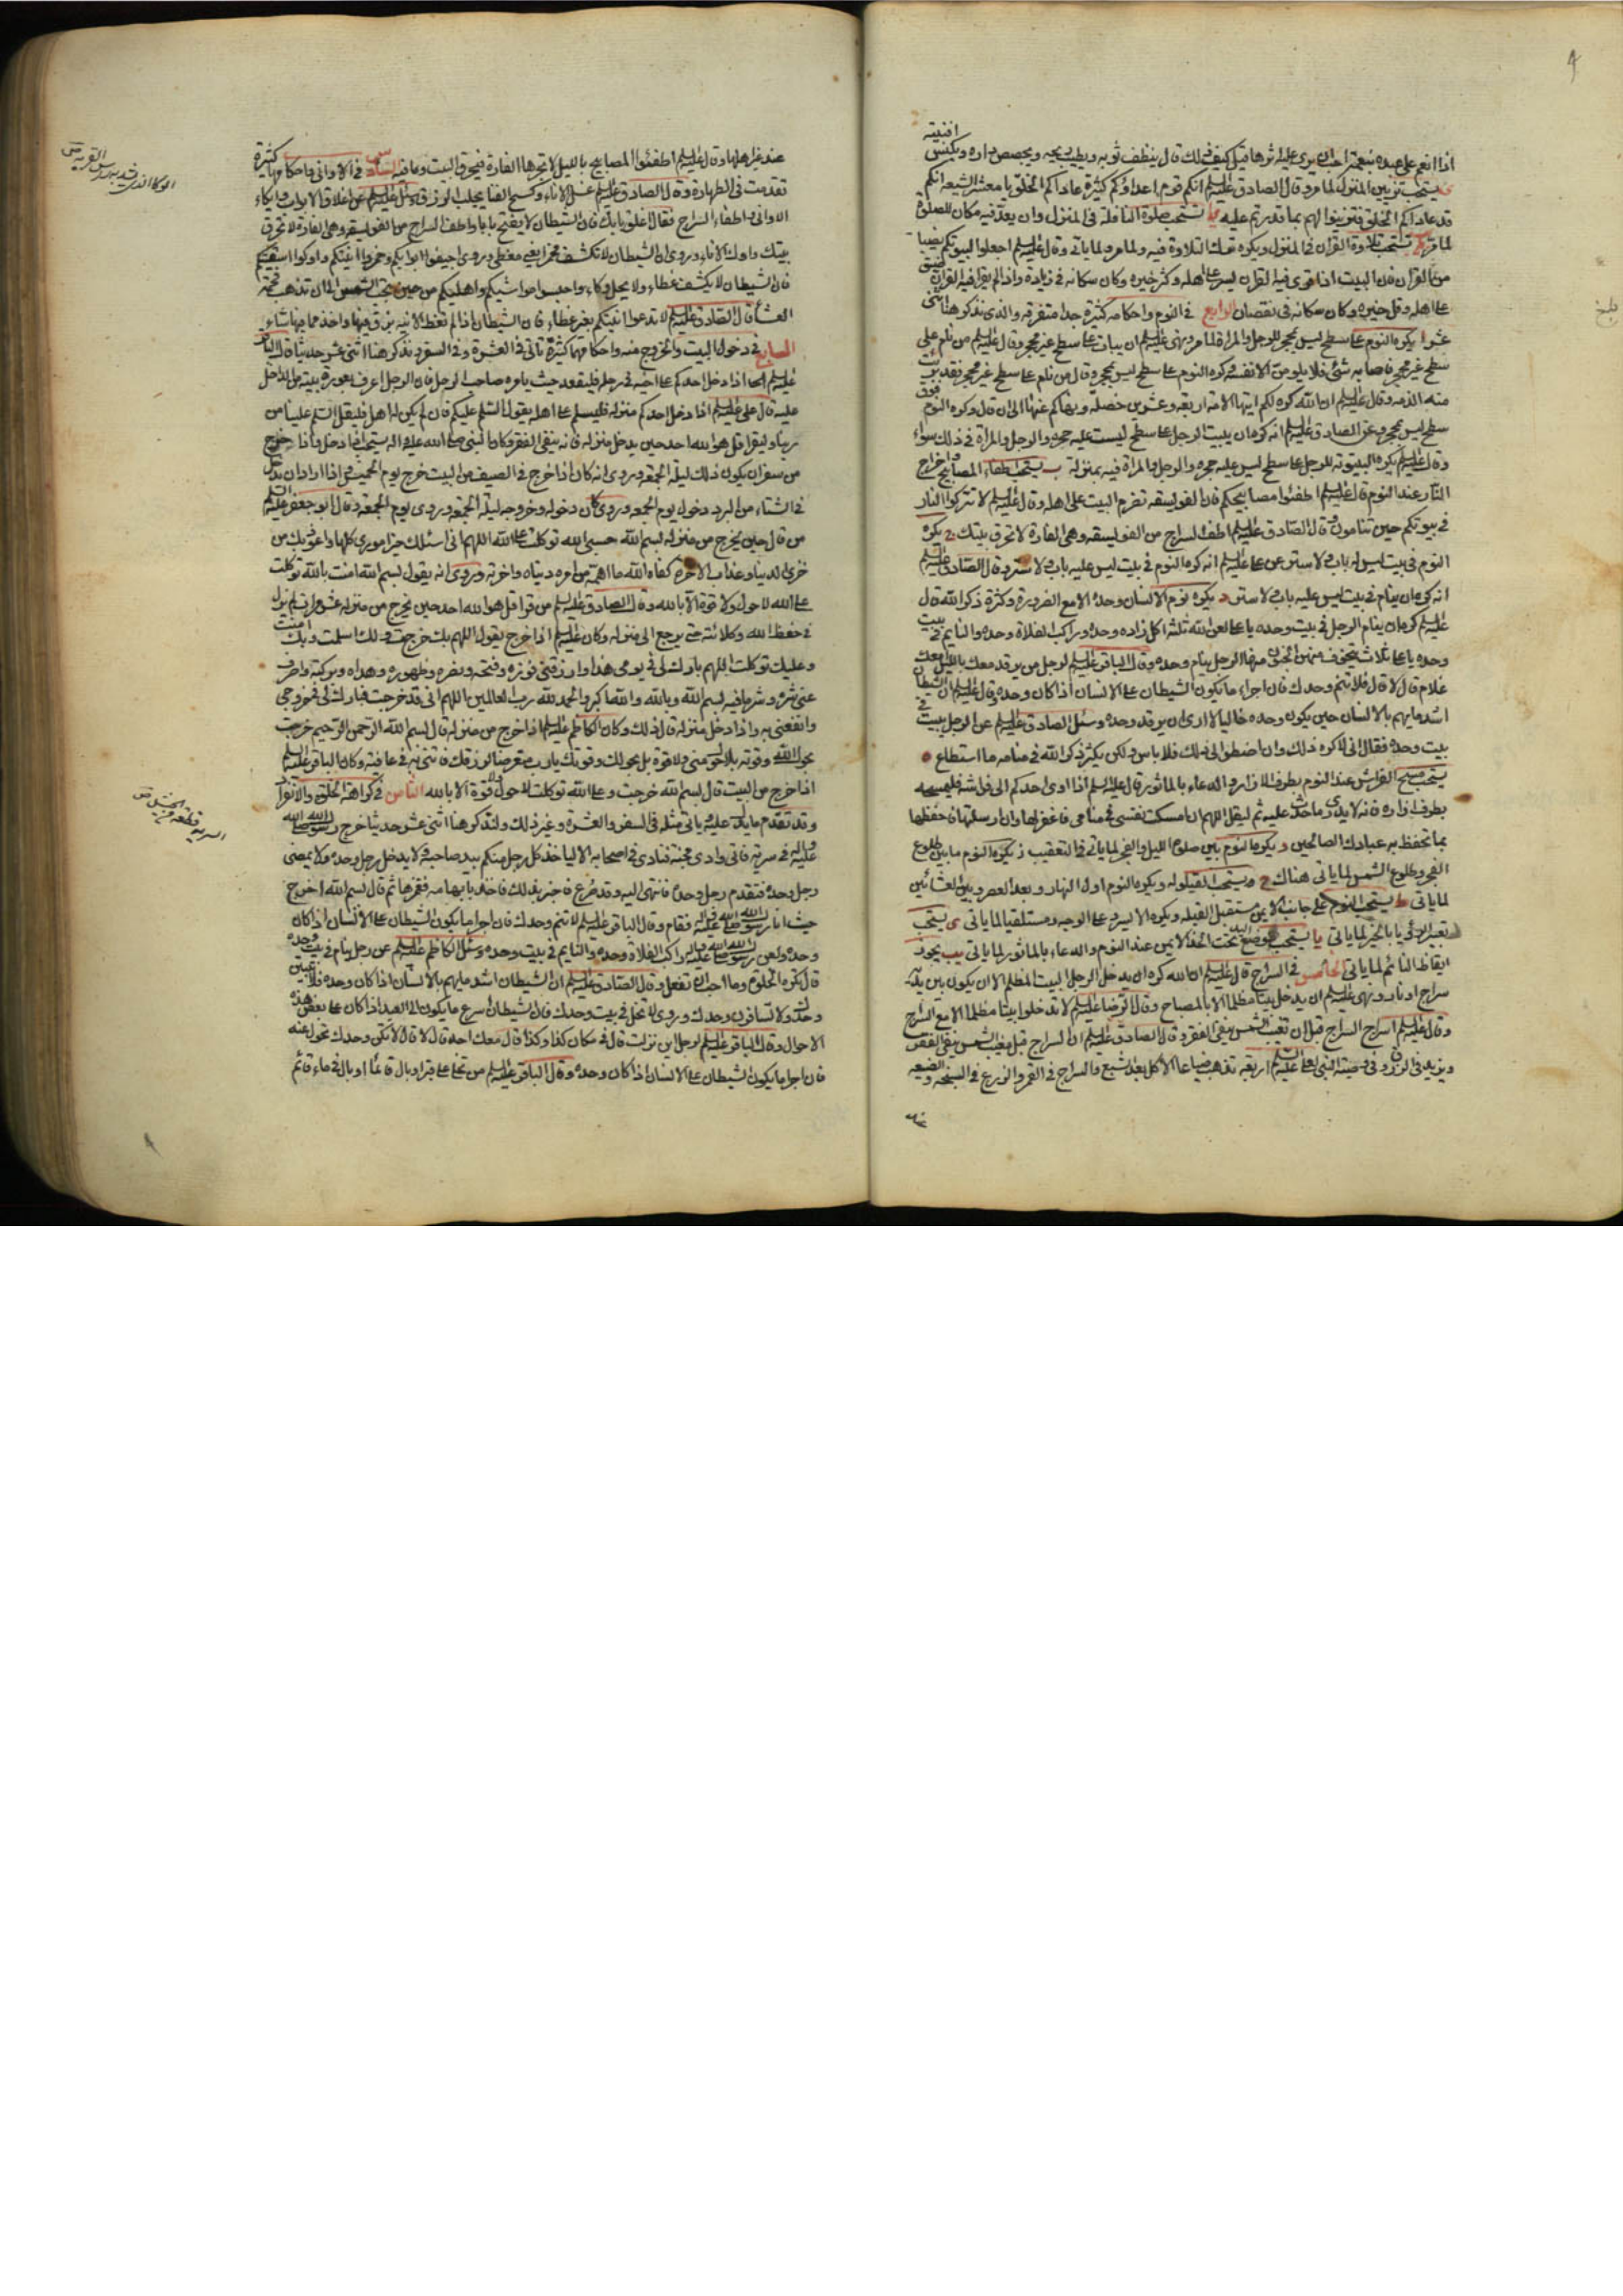 اذا انعم على عبده بنعمة احب ان يرى عليه اثرها قيل كيف ذلك قال ينظف ثوبه ويطيب ريحه ويجصص داره ويكنس افنيته
يستحب تزيين المنزل لما مر وقال الصادق عليه السلام انكم قوم اعداؤكم كثيرة عاداكم الخلق يا معشر الشيعة انكم
قد عاداكم الخلق فتزينوا لهم بما قدرتم عليه يستحب صلوة النافلة في المنزل وان يعد فيه مكان للصلوة
لما مر يستحب تلاوة القران في المنزل ويكره ترك التلاوة فيه ولما مر ولما ياتي وقال عليه السلام اجعلوا لبيوتكم نصيبا
من القران فان البيت اذا قرئ فيه القران يسر على اهله وكثر خيره وكان سكانه في زيادة واذا لم يقرا فيه القران ضيق
على اهله وقل خيره وكان سكانه في نقصان الرابع في النوم واحكامه كثيرة جدا متفرقة والذي نذكر هنا اثنى
عشر ا يكره النوم على سطح ليس بمحجر للرجل والمراة لما مر ونهى عليه السلام ان يبات على سطح غير محجر وقال عليه السلام من نام على
سطح غير محجر فاصابه شئ فلا يلومن الا نفسه وكره النوم على سطح ليس بمحجر وقال من نام على سطح غير محجر فقد برئت
منه الذمة وقال عليه السلام ان الله كره لكم ايتها الامة اربعة وعشرين خصلة ونهاكم عنها الى ان قال وكره النوم فوق
سطح ليس بمحجر وعن الصادق عليه السلام انه كره ان يبيت الرجل على سطح ليست عليه حجرة والرجل والمراة في ذلك سواء
وقال عليه السلام يكره البيتوتة للرجل على سطح ليس عليه حجرة والرجل والمراة فيه بمنزلة ب يستحب اطفاء المصابيح واخراج
النار عند النوم قال عليه السلام اطفئوا مصابيحكم فان الفويسقة تضرم البيت على اهله وقال عليه السلام لا تتركوا النار
في بيوتكم حين تنامون وقال الصادق عليه السلام اطف السراج من الفويسقة وهى الفارة لا تحرق بيتك ج يكره
النوم في بيت ليس له باب ولا ستر عن على عليه السلام انه كره النوم في بيت ليس عليه باب ولا ستر وقال الصادق عليه السلام
انه كره ان ينام في بيت ليس عليه باب ولا ستر د يكره نوم الانسان وحده الا مع الضرورة وكثرة ذكر الله قال
عليه السلام كره ان ينام الرجل في بيت وحده يا على لعن الله ثلثة اكل زاده وحده وراكب الفلاة وحده والنايم في بيت
وحده يا على ثلاث يتخوف منهن الجنون منها الرجل ينام وحده وقال الباقر عليه السلام لرجل من يرقد معك بالليل امعك
غلام قال لا قال فلا تنم وحدك فان اجرء ما يكون الشيطان على الانسان اذا كان وحده وقال عليه السلام ان الشيطان
اشد ما يهم بالانسان حين يكون وحده خاليا لا ارى ان يرقد وحده وسئل الصادق عليه السلام عن الرجل يبيت في
بيت وحده فقال انى لاكره ذلك وان اضطر الى ذلك فلا باس ولكن يكثر ذكر الله في منامه ما استطاع ه
يستحب مسح الفراش عند النوم بطرف الازار والدعاء بالماثور قال عليه السلام اذا اوى احدكم الى فراشه فليمسحه
بطرف ازاره فانه لا يدرى ما حدث عليه ثم ليقل اللهم ان امسكت نفسى في منامى فاغفر لها وان ارسلتها فاحفظها
بما تحفظ به عبادك الصالحين و يكره النوم بين صلوة الليل والفجر لما ياتي في التعقيب ز يكره النوم ما بين طلوع
الفجر وطلوع الشمس لما ياتي هناك ح يستحب القيلولة ويكره النوم اول النهار وبعد العصر وبين العشائين
لما ياتي ط يستحب النوم على جانب الايمن مستقبل القبلة ويكره الايسر وعلى الوجه ومستلقيا لما ياتي ى يستحب
تعبير الرؤيا بالخير لما ياتي يا يستحب وضع اليد تحت الخد الايمن عند النوم والدعاء بالماثور لما ياتي يب يجوز
ايقاظ النائم لما ياتي الخامس في السراج قال عليه السلام ان الله كره ان يدخل الرجل البيت المظلم الا ان يكون بين يديه
سراج او نار ونهى عليه السلام ان يدخل بيتا مظلما الا بالمصباح وقال الرضا عليه السلام لا تدخلوا بيتا مظلما الا مع السراج
وقال عليه السلام اسراج السراج قبل ان تغيب الشمس ينفى الفقر وقال الصادق عليه السلام ان السراج قبل مغيب الشمس ينفى الفقر
ويزيد في الرزق وفي وصية النبى لعلى عليه السلام اربعة تذهب ضياعا الاكل بعد الشبع والسراج في القمر والزرع في السبخة والصنيعة
عند غير اهلها وقال عليه السلام اطفئوا المصابيح بالليل لا تجرها الفارة فيحرق البيت وما فيه السادس في الاواني واحكامها كثيرة
تقدمت في الطهارة وقال الصادق عليه السلام غسل الاناء وكسح الفنا يجلب الرزق وسئل عليه السلام عن اغلاق الابواب وايكاء
الاواني واطفاء السراج فقال اغلق بابك فان الشيطان لا يفتح بابا واطف السراج من الفويسقة وهى الفارة لا تحرق
بيتك واوك الاناء وروى ان الشيطان لا يكشف مخمرا يعنى مغطى وروى اجيفوا ابوابكم وخمروا انيتكم واوكوا اسقيتكم
فان الشيطان لا يكشف غطاء ولا يحل وكاء واحبسوا مواشيكم واهليكم من حين تجب الشمس الى ان تذهب فحمة
العشا قال الصادق عليه السلام لا تدعوا انيتكم بغير غطاء فان الشيطان اذا لم تغط الانية بزق فيها واخذ مما فيها ما شاء
السابع في دخول البيت والخروج منه واحكامهما كثيرة تاتي في العشرة وفي السفر ونذكر هنا اثنى عشر حديثا قال الباقر
عليه السلام اذا دخل احدكم على اخيه في رحله فليقعد حيث يامره صاحب الرحل فان الرجل اعرف بعورة بيته من الداخل
عليه قال على عليه السلام اذا دخل احدكم منزله فليسلم على اهله يقول السلم عليكم فان لم يكن له اهل فليقل السلم علينا من
ربنا وليقرا قل هو الله احد حين يدخل منزله فانه ينفى الفقر وكان النبى صلى الله عليه واله يستحب اذا دخل واذا خرج
من سفر ان يكون ذلك ليلة الجمعة وروى انه كان اذا خرج في الصيف من البيت خرج يوم الخميس واذا اراد ان يدخل
في الشتاء من البرد دخل يوم الجمعة وروى كان دخوله وخروجه ليلة الجمعة وروى يوم الجمعة وقال ابو جعفر عليه السلام
من قال حين يخرج من منزله بسم الله حسبى الله توكلت على الله اللهم انى اسئلك خير امورى كلها واعوذ بك من
خزى الدنيا وعذاب الاخرة كفاه الله ما اهمه من امر دنياه واخرته وروى انه يقول بسم الله امنت بالله توكلت
على الله لا حول ولا قوة الا بالله وقال الصادق عليه السلام من قرا قل هو الله احد حين يخرج من منزله عشر مرات لم يزل
في حفظ الله وكلائته حتى يرجع الى منزله وكان عليه السلام اذا خرج يقول اللهم بك خرجت ولك اسلمت وبك امنت
وعليك توكلت اللهم بارك لى في يومى هذا وارزقنى فوزه وفتحه ونصره وطهوره وهداه وبركته واصرف
عنى شره وشر ما فيه بسم الله وبالله والله اكبر والحمد لله رب العالمين اللهم انى قد خرجت فبارك لى في خروجى
وانفعنى به واذا دخل منزله قال ذلك وكان الكاظم عليه السلام اذا خرج من منزله قال بسم الله الرحمن الرحيم خرجت
بحول الله وقوته بلا حول منى ولا قوة بل بحولك وقوتك يا رب متعرضا لرزقك فاتنى به في عافية وكان الباقر عليه السلام
اذا خرج من البيت قال بسم الله خرجت وعلى الله توكلت لا حول ولا قوة الا بالله الثامن في كراهة الخلوة والانفراد
وقد تقدم ما يدل عليه وياتي مثله في السفر والعشرة وغير ذلك ولنذكر هنا اثنى عشر حديثا خرج رسول الله صلى الله
عليه واله في سرية فاتى وادى مجنة فنادى في اصحابه الا لياخذ كل رجل منكم بيد صاحبه ولا يدخل رجل وحده ولا يمضى
رجل وحده فتقدم رجل وحده فانتهى اليه وقد صرع فاخبر بذلك فاخذ بابهامه فغمزها ثم قال بسم الله اخرج
حيث انا رسول الله صلى الله عليه واله فقام وقال الباقر عليه السلام لا تنم وحدك فان اجرا ما يكون الشيطان على الانسان اذا كان
وحده ولعن رسول الله صلى الله عليه واله راكب الفلاة وحده والنايم في بيت وحده وسئل الكاظم عليه السلام عن رجل ينام في بيت وحده
قال تكره الخلوة وما احب ان تفعل وقال الصادق عليه السلام ان الشيطان اشد ما يهم بالانسان اذا كان وحده فلا تبيتن
وحدك ولا تسافرن وحدك وروى لا تخل في بيت وحدك فان الشيطان اسرع ما يكون الى العبد اذا كان على بعض هذه
الاحوال وقال الباقر عليه السلام لرجل اين نزلت قال في مكان كذا وكذا قال معك احد قال لا قال لا تكن وحدك تحول عنه
فان اجرا ما يكون الشيطان على الانسان اذا كان وحده وقال الباقر عليه السلام من تخلى على قبر او بال قائما او بال في ماء قائم